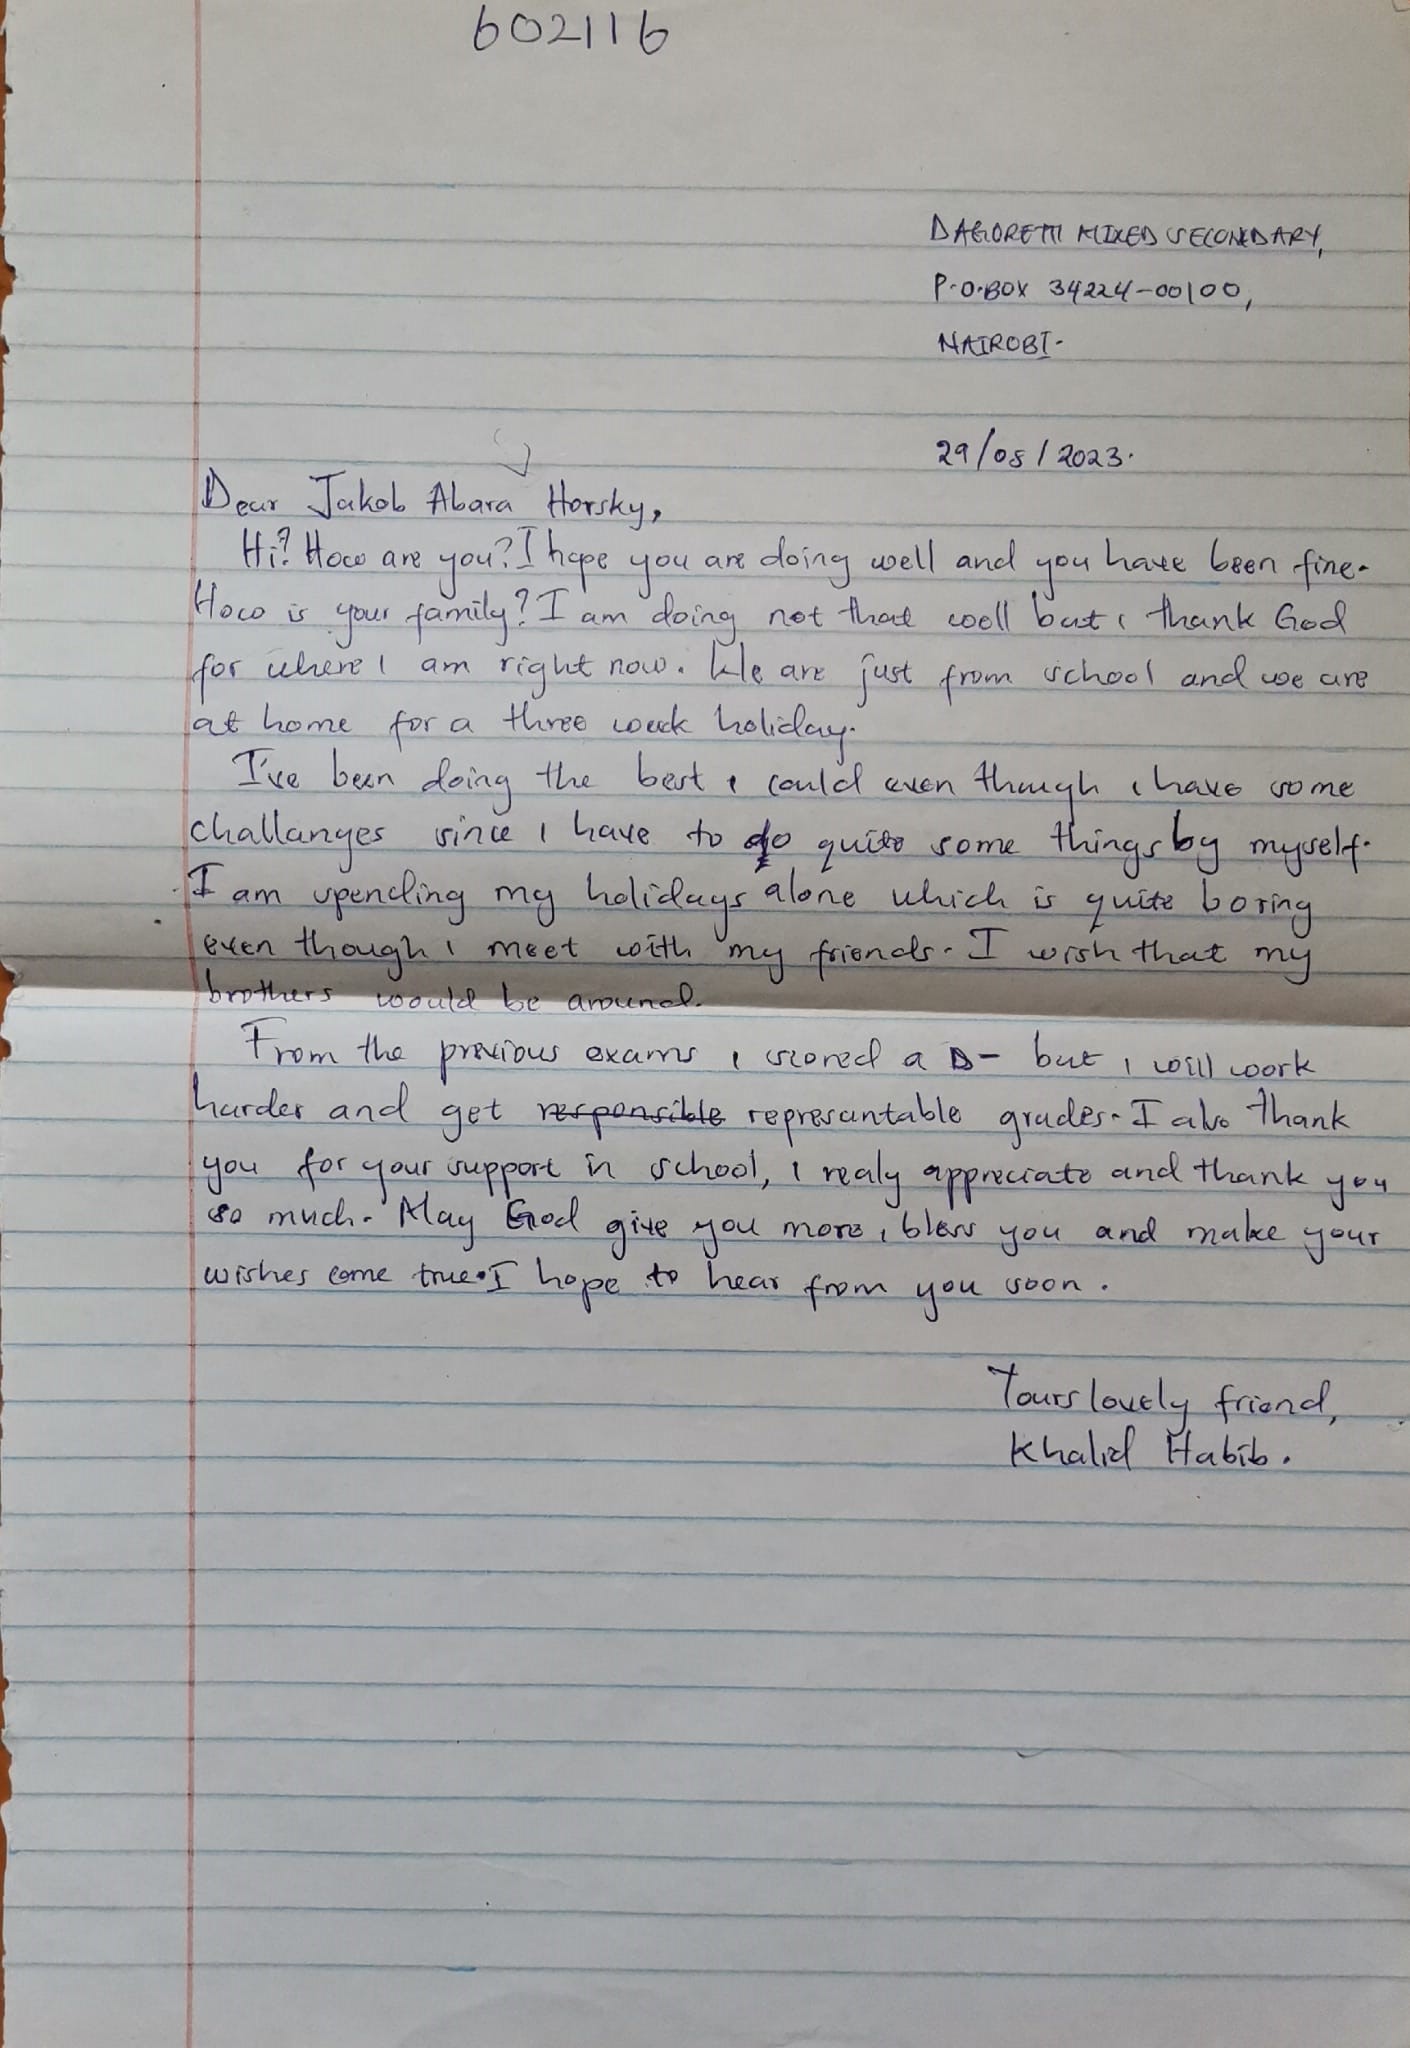 602116
DAGORETTI MIXED SECONDARY,
P.O.BOX 34224-00100,
NAIROBI.
29/08/2023.
Dear Jakob Abara Horsky,
Hi? How are you? I hope you are doing well and you have been fine.
How is your family? I am doing not that well but i thank God
for where I am right now. We are just from school and we are
at home for a three week holiday.
I've been doing the best i could even though i have some
challanges since i have to do quite some things by myself.
I am spending my holidays alone which is quite boring
even though i meet with my friends. I wish that my
brothers would be around.
From the previous exams i scored a D- but i will work
harder and get responsible represantable grades. I also thank
you for your support in school, i realy appreciate and thank you
so much. May God give you more, bless you and make your
wishes come true. I hope to hear from you soon.
Yours lovely friend,
Khalid Habib.